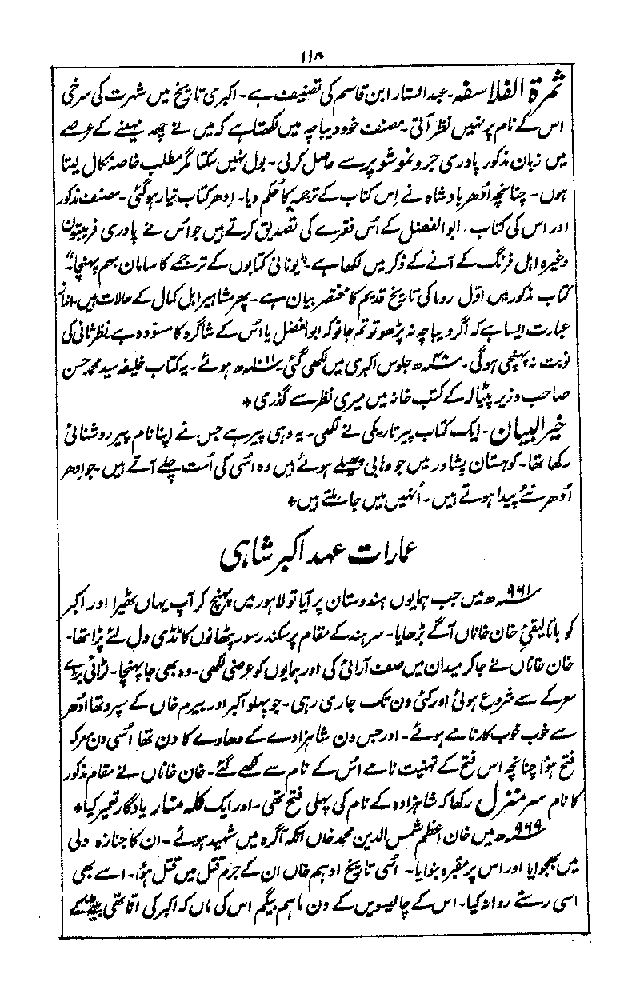 ۱۱۵
ثمرة الفلاسفہ۔ عبدالستار ابن قاسم کی تصنیف ہے۔ اکبری تاریخ میں شہرت کی سرخی
اس کے نام پر نہیں نظر آتی۔ مصنف خود دیباچہ میں لکھتا ہے کہ میں نے چھ مہینے کے عرصے
میں زبان مذکور پادری جرونمو شوپر سے حاصل کرلی۔ بول نہیں سکتا مگر مطلب خاصہ نکال لیتا
ہوں۔ چنانچہ اُدھر بادشاہ نے اس کتاب کے ترجمہ کا حکم دیا۔ ادھر کتاب تیار ہوگئی۔ مصنف مذکور
اور اس کی کتاب۔ ابوالفضل کے اُس فقرے کی تصدیق کرتے ہیں جو اُس نے پادری فریبتون
وغیرہ اہل فرنگ کے آنے کے ذکر میں لکھا ہے "یونانی کتابوں کے ترجمے کا سامان بہم پہنچا"
کتاب مذکور میں اوّل روما کی تاریخ قدیم کا مختصر بیان ہے۔ پھر مشاہیر اہل کمال کے حالات ہیں۔ اندازِ
عبارت ایسا ہے کہ اگر دیباچہ نہ پڑھو تو تم جانو کہ ابوالفضل یا اُس کے شاگرد کا مسودہ ہے نظر ثانی کی
نوبت نہ پہنچی ہوگی۔ جلوس اکبری میں لکھی گئی ھ ہوئے۔ یہ کتاب خلیفہ سید محمد حسن
صاحب وزیر پٹیالہ کے کتب خانہ میں میری نظر سے گذری +
خیر البیان۔ ایک کتاب پیر تاریکی نے لکھی۔ یہ وہی پیر ہے جس نے اپنا نام پیر روشنائی
رکھا تھا۔ کوہستان پشاور میں جو وہابی پھیلے ہوئے ہیں وہ اُسی کی اُمت چلے آتے ہیں۔ جو ادھر
اُدھر نئے پیدا ہوتے ہیں۔ اُنہیں میں جا ملتے ہیں +
عمارات عہد اکبر شاہی
۹۶۱ھ میں جب ہمایوں ہندوستان پر آیا تو لاہور میں پہنچ کر آپ یہاں ٹھیرا اور اکبر
کو باتالیقئِ خان خاناں آگے بڑھایا۔ سرہند کے مقام پر سکندر سور پٹھانوں کا ٹڈی دل لئے پڑا تھا۔
خان خاناں نے جاکر میدان میں صف آرائی کی اور ہمایوں کو عرضی لکھی۔ وہ بھی جا پہنچا۔ لڑائی بڑے
معرکے سے شروع ہوئی اور کئی دن تک جاری رہی۔ جو پہلو اکبر اور بیرم خاں کے سپرد تھا اُدھر
سے خوب خوب کارنامے ہوئے۔ اور جس دن شاہزادے کے دھاوے کا دن تھا اُسی دن معرکہ
فتح ہؤا چنانچہ اس فتح کے تہنیت نامے اُس کے نام سے لکھے گئے۔ خان خاناں نے مقام مذکور
کا نام سر منزل رکھا کہ شاہزادہ کے نام کی پہلی فتح تھی۔ اور ایک کلہ منار یادگار تعمیر کیا +
۹۶۹ھ میں خان اعظم شمس الدین محمد خاں اتکہ آگرہ میں شہید ہوئے۔ ان کا جنازہ دلّی
میں بھجوایا اور اس پر مقبرہ بنوایا۔ اُسی تاریخ ادہم خاں ان کے جرم قتل میں قتل ہؤا۔ اسے بھی
اسی رستے روانہ کیا۔ اس کے چالیسویں کے دن ماہم بیگم اس کی ماں کہ اکبر کی اتا تھی